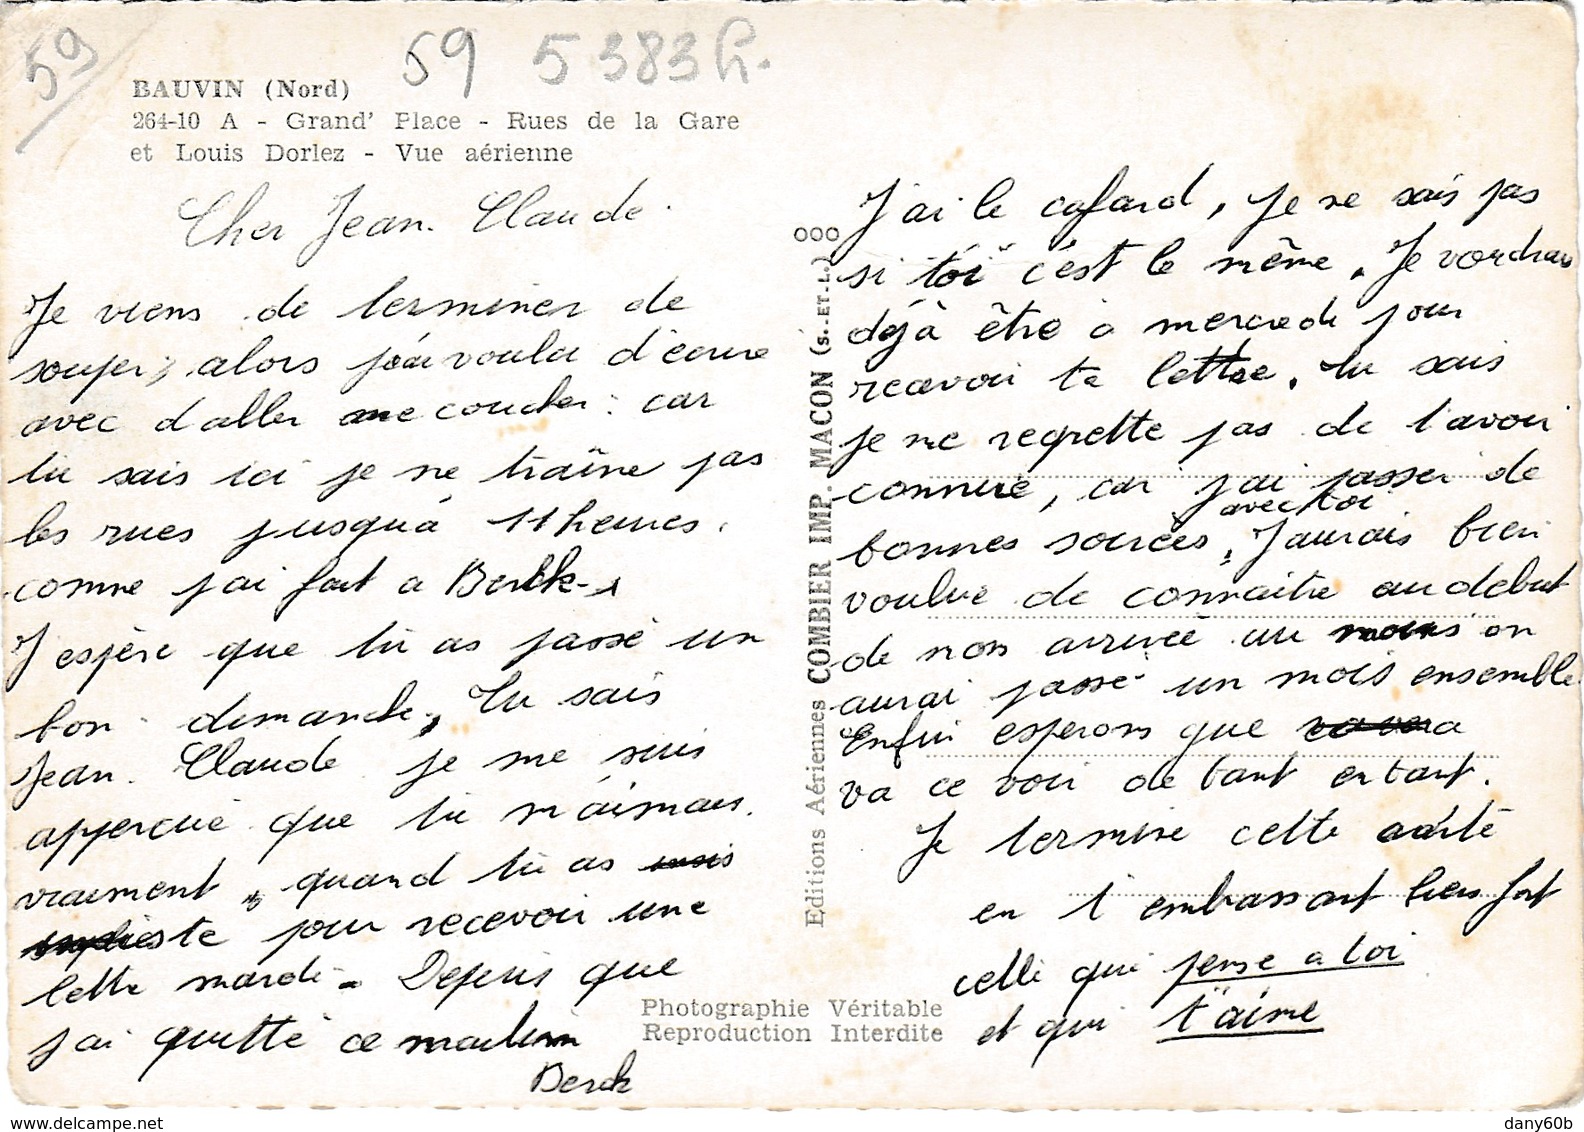 59
59 5383h.
BAUVIN (Nord)
264-10 A - Grand' Place - Rues de la Gare
et Louis Dorlez - Vue aérienne
Cher Jean. Claude.
Je viens de terminer de
souper, alors j'ai voulu d'écrire
avec d'aller me coucher. car
tu sais ici je ne traîne pas
les rues jusqu'à 11 heures.
comme j'ai fait a Berck.
J'espère que tu as passé un
bon dimanche, Tu sais
Jean. Claude je me suis
apperçue que tu m'aimais.
vraiment, quand tu as
poste pour recevoir une
lettre mardi. Depuis que
j'ai quitté ce matin
Berck
J'ai le cafard, je ne sais pas
si toi c'est le même. Je voordrais
déjà être a mercredi pour
recevoir ta lettre. tu sais
je ne regrette pas de t'avoir
connue, car j'ai passer de
bonnes soirées avec toi, J'aurais bien
voulue de connaitre au debut
de non arrivée au moins on
aurai passé un mois ensemble
Enfin esperons que
va ce voir de tant en tant.
Je termine cette carte
en t'embrassant bien fort
celle qui pense a toi
et qui t'aime
Editions Aériennes COMBIER IMP. MACON (S.-ET-L.) OOO
Photographie Véritable
Reproduction Interdite
www.delcampe.net
dany60b